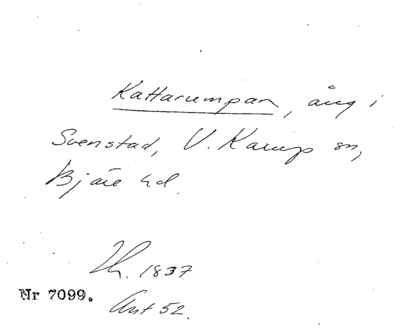 Kattarumpan, äng i
Svenstad, V. Karup sn,
Bjäre hd.
Lh. 1837
Nr 7099.
Akt 52.